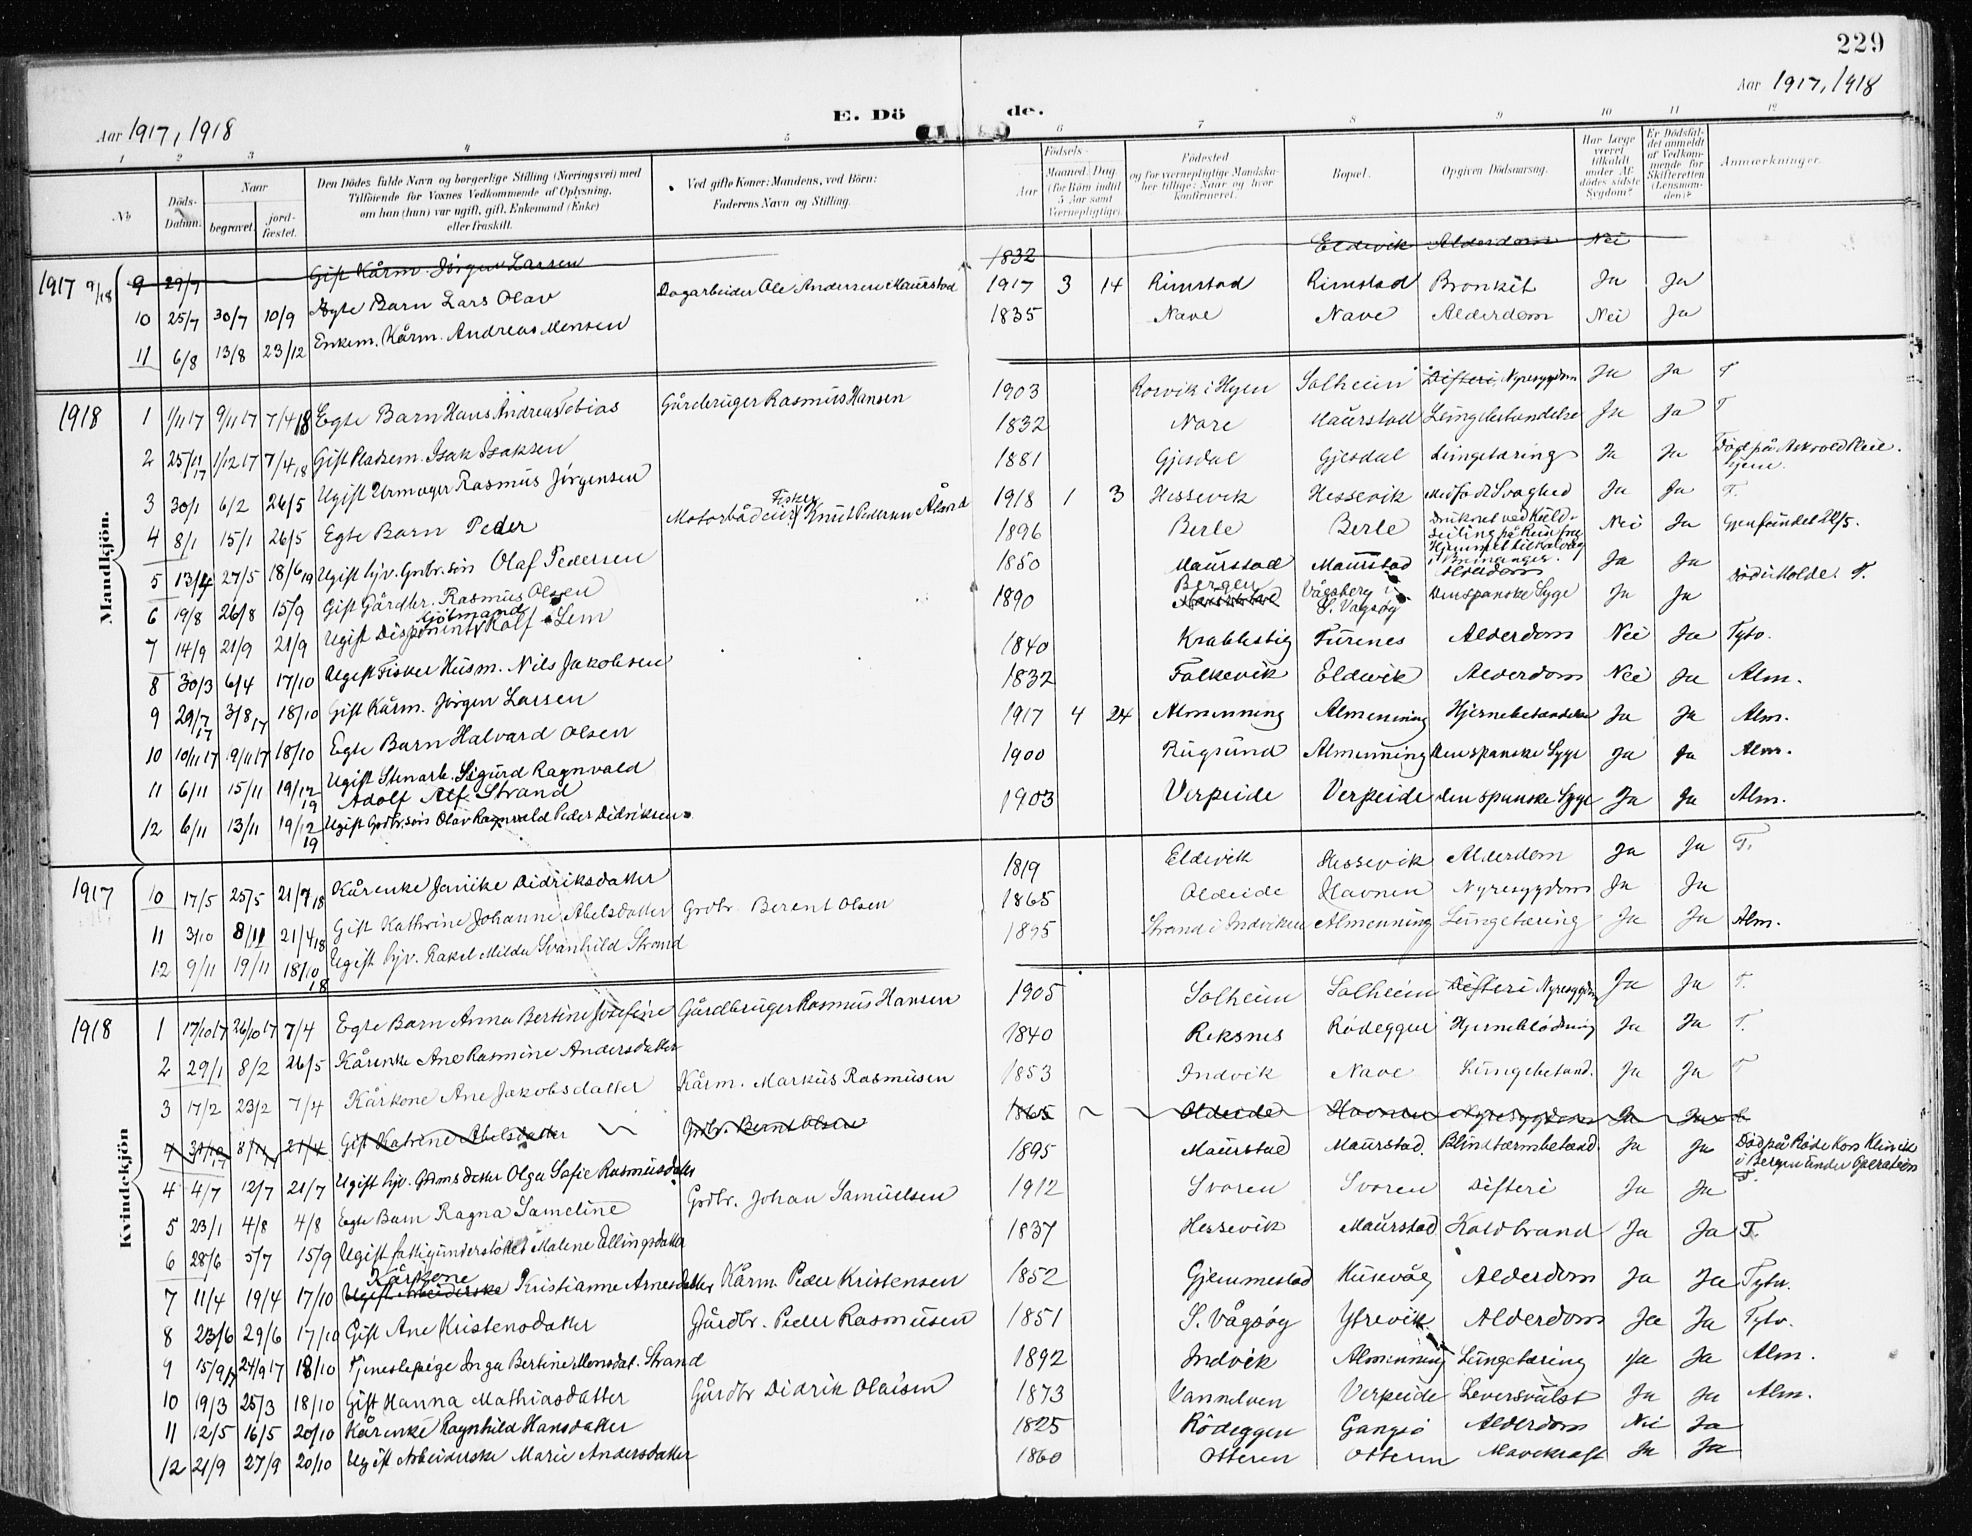 229
Aar 1917, 1918
E. Döde.
Aar 1917, 1918
1 2 3 4 5 6 7 8 9 10 11 12
No
Döds-Datum.
Naar
begravet.
jord-fæstet.
Den Dödes fulde Navn og borgerlige Stilling (Næringsvei) med Tilföiende for Voxnes Vedkommende af Oplysning, om han (hun) var ugift, gift, Enkemand (Enke) eller fraskilt.
Ved gifte Koner: Mandens, ved Börn: Faderens Navn og Stilling.
Födsels-
Aar
Maaned. Dag. (for Börn indtil 5 Aar samt Værnepligtige).
Födested og for værnepligtige Mandskaber tillige: Naar og hvor konfirmeret.
Bopæl.
Opgiven Dödsaarsag.
Har Læge været tilkaldt under Afdödes sidste Sygdom?
Er Dödsfaldet anmeldt af Vedkommende for Skifteretten (Lensmanden)?
Anmærkninger.
Mandkjön.
1917 9/18 9 29/7 Gift Kårm. Jörgen Larsen 1832 Eldevik Alderdom Nei
10 25/7 30/7 10/9 Egte Barn Lars Olav Dagarbeider Ole Andersen Maurstad 1917 3 14 Rimstad Rimstad Bronkit Ja Ja
11 6/8 13/8 23/12 Enkem. Kårm. Andreas Monsen 1835 Nave Nave Alderdom Nei Ja
1918 1 1/11 17 9/11 17 7/4 18 Egte Barn Hans Andreas Tobias Gårdbruger Rasmus Hansen 1903 Rorvik i Hyen Solheim Difteri, Nyresygdom Ja Ja T
2 25/11 17 1/12 17 7/4 18 Gift Pladsem. Isak Isaksen 1832 Nore Maurstad Lungebetændelse Ja Ja T
3 30/1 6/2 26/5 Ugift Urmager Rasmus Jörgensen 1881 Gjesdal Gjesdal Lungetæring Ja Ja Död på Askvold Pleiehjem.
4 8/1 15/1 26/5 Egte Barn Peder Motorbådeier Fisker Knut Pedersen 1918 1 3 Hessevik Hessevik Medfödt Svaghed Ja Ja T.
5 13/4 27/5 18/6 19 Ugift hjv. Grdbr. sön Olaf Pedersen 1896 Berle Berle Druknet ved Kuldseiling på Reise fra Hjemmet til Kalvåg i Bremanger. Nei Ja Gjenfundet 22/5.
6 19/8 26/8 15/9 Gift Gårdbr. Rasmus Olsen 1850 Maurstad Maurstad Alderdom Ja Ja
7 14/9 21/9 21/9 Ugift Disponent Kjöbmand Rolf Lem 1890 Bergen Vågsberg i S. Vagsöy Den spanske Syge Ja Ja Död i Molde. T.
8 30/3 6/4 17/10 Ugift Fisker Husm. Nils Jakobsen 1840 Krabbestig Furenes Alderdom Nei Ja Tytv.
9 29/7 17 3/8 17 18/10 Gift Kårm. Jörgen Larsen 1832 Falkevik Eldevik Alderdom Nei Ja Alm.
10 10/11 17 19/11 17 18/10 Egte Barn Halvard Olsen 1917 4 24 Almenning Almenning Hjernebetændelse Ja Ja Alm.
11 6/11 15/11 19/12 19 Ugift Stenarb. Sigurd Ragnvald Adolf Alf Strand 1900 Rugsund Almenning Den spanske Syge Ja Ja Alm.
12 6/11 13/11 19/12 19 Ugift Grdbr. sön Olav Ragnvald Peder Didriksen 1903 Verpeide Verpeide Den spanske Syge Ja Ja Alm.
Kvindekjön
1917 10 17/5 25/5 21/7 18 Kårenke Janike Didriksdatter 1819 Eldevik Hessevik Alderdom Ja Ja T.
11 3/10 8/11 21/4 18 Gift Kathrine Johanne Abelsdatter Grdbr. Berent Olsen 1865 Oldeide Havnen Nyresygdom Ja Ja
12 9/11 19/11 18/10 18 Ugift hjv. Rakel Milda Svanhild Strand 1895 Strand i Indviken Almenning Lungetæring Ja Ja Alm.
1918 1 17/10 17 26/10 17 7/4 Egte Barn Anna Bertine Josefine Gårdbruger Rasmus Hansen 1905 Solheim Solheim Difteri Nyresygdom Ja Ja T.
2 29/1 8/2 26/5 Kårenke Ane Rasmine Andersdatter 1840 Reksnes Rödeggen Hjerneblödning Ja Ja T.
3 17/2 23/2 7/4 Kårkone Ane Jakobsdatter Kårm. Markus Rasmusen 1853 Indvik Nave Lungebetænd. Ja Ja T
4 31/10 17 8/11 17 21/4 Gift Katrine Abelsdatter Grdbr. Bernt Olsen 1865 Oldeide Havnen Nyresygdom Ja Ja
4 4/7 12/7 21/7 Ugift hjv. Grdmsdatter Olga Sofie Rasmusdatter 1895 Maurstad Maurstad. Blindtarmbetænd. Ja Ja Död på Röde Kors Klinik i Bergen under Operation T.
5 23/1 4/8 4/8 Egte Barn Ragna Sameline Grdbr. Johan Samuelsen 1912 Svoren Svoren Difteri Ja Ja
6 28/6 5/7 15/9 Ugift fattigunderstöttet Malene Ellingsdatter 1837 Hessevik Maurstad Koldbrand Ja Ja T.
7 11/4 19/4 17/10 Ugift Arbeiderske Kårkone Kristianne Arnesdatter Kårm. Peder Kristensen 1852 Gjemmestad Husevåg Alderdom Ja Ja Tytv.
8 23/6 29/6 17/10 Gift Ane Kristensdatter Gårdbr. Peder Rasmusen 1851 S. Vågsöy Ytrevik Alderdom Ja Ja Tytv.
9 15/9 17 24/9 17 18/10 Tjenestepige Inga Bertine Monsdat. Strand 1892 Indvik Almenning Lungetæring Ja Ja Alm.
10 19/3 25/3 18/10 Gift Hanna Mathiasdatter Gårdbr Didrik Olaisen 1873 Vannelven Verpeide Leversvulst Ja Ja Alm.
11 12/5 16/5 20/10 Kårenke Ragnhild Hansdatter 1825 Rödeggen Gangsö Alderdom Nei Ja
12 21/9 27/9 20/10 Ugift Arbeiderske Marie Andersdatter 1860 Otteren Otteren Mavekræft Ja Ja